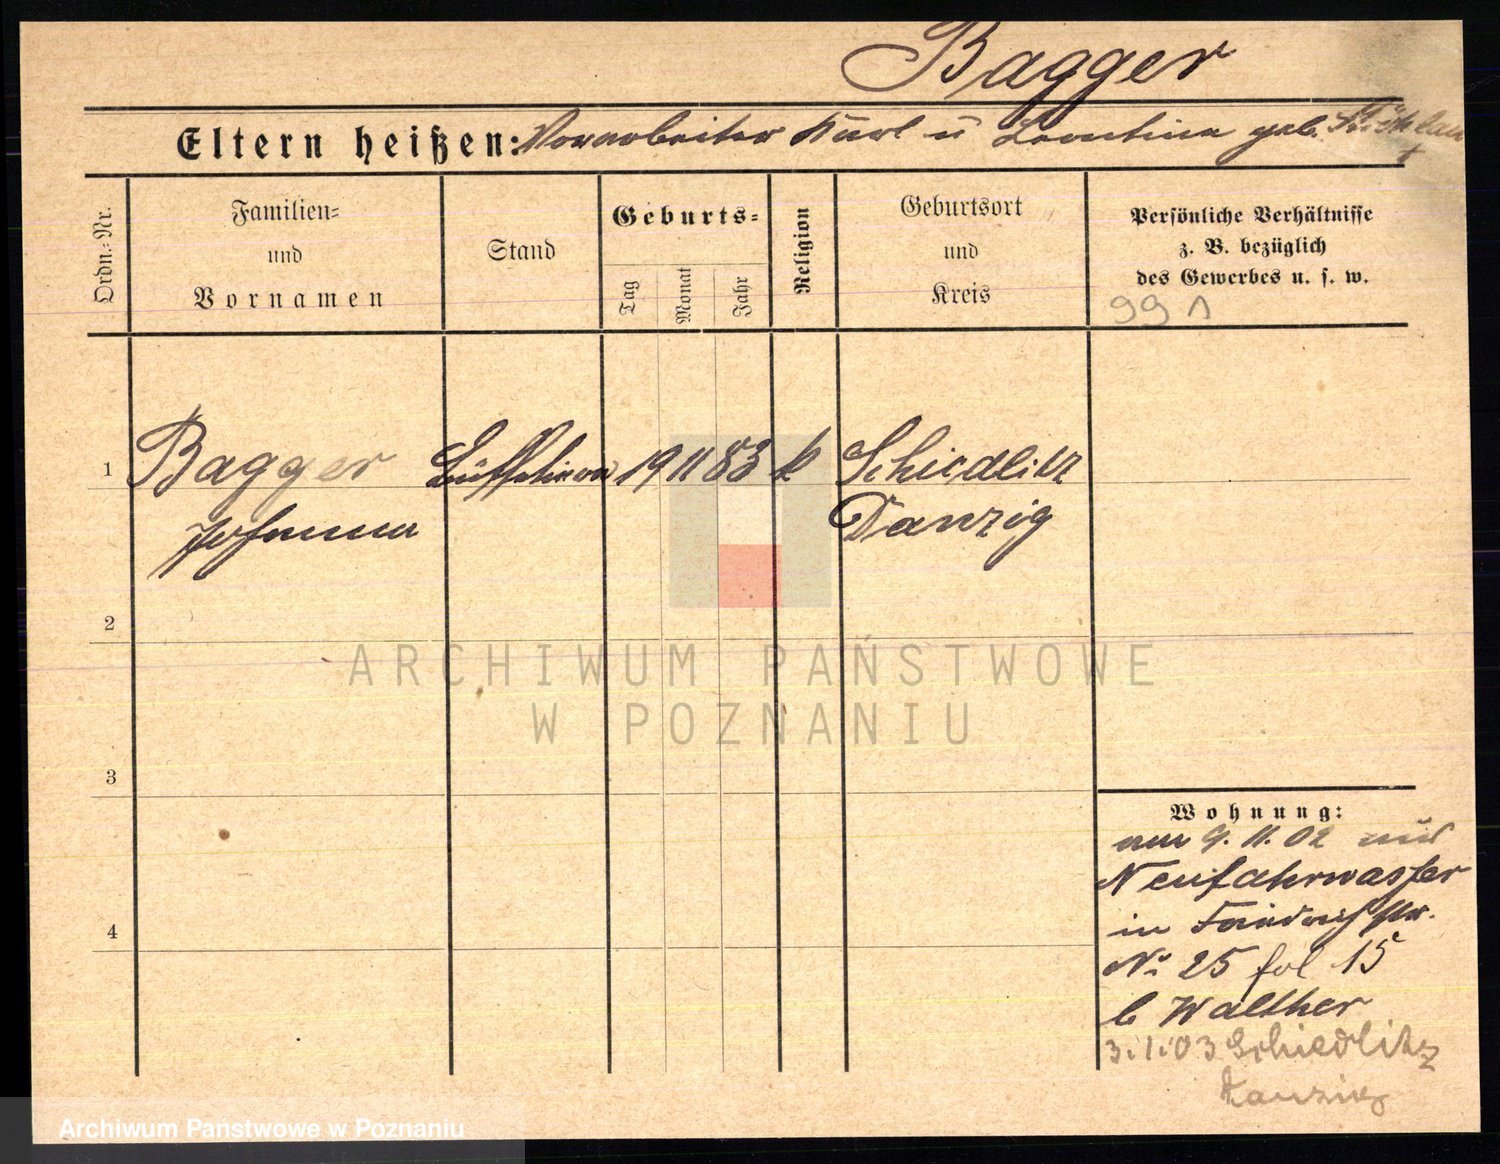 Bagger
Eltern heißen: Vorarbeiter Karl u Leontine geb.
Ordn.-Nr.
Familien-
und
Vornamen
Stand
Geburts-
Tag
Monat
Jahr
Religion
Geburtsort
und
Kreis
Persönliche Verhältnisse
z. B. bezüglich
des Gewerbes u. s. w.
99 1
1 Bagger 19 11 83 k Schiedlitz
Johanna Danzig
2
3
4
ARCHIWUM PAŃSTWOWE
W POZNANIU
Wohnung:
9. 11. 02 aus
Neufahrwasser
in
No 25 fol 15
b Walther
3.1.03 Schiedlitz
Danzig
Archiwum Państwowe w Poznaniu